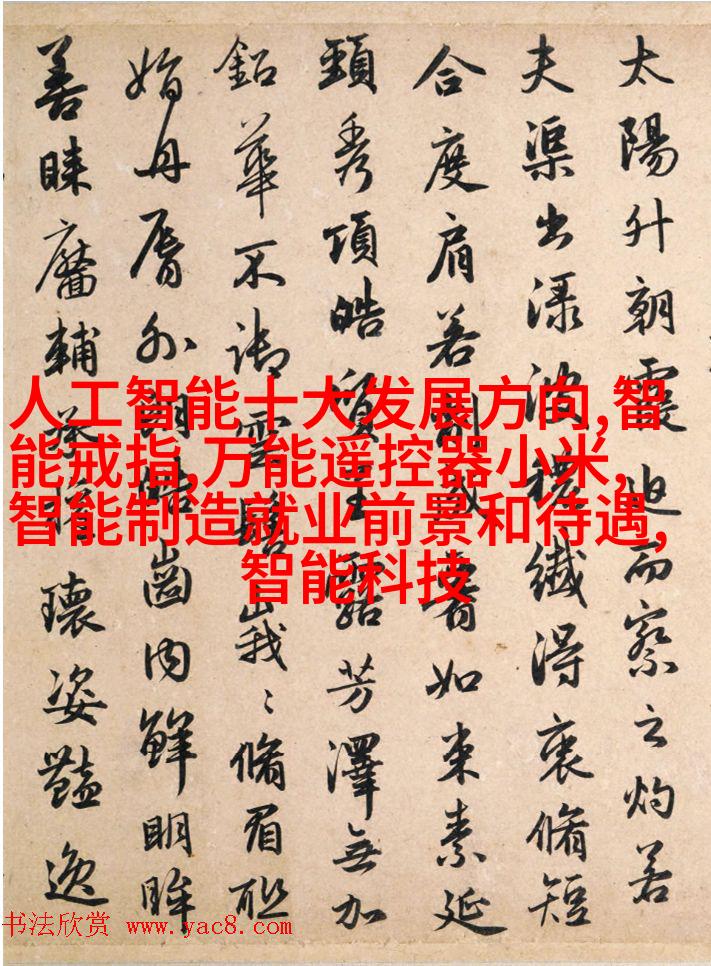 太陽升朝霞迫而察之灼若
夫渠出渌波穠纖得衷脩短
合度肩若削成如束素延
頸秀項皓質呈露芳澤無加
鈆華不御雲髻峩〻脩眉聮
娟丹脣外朗皓齒内鮮明眸
善睞靨輔瓌姿豔逸
人工智能十大发展方向,智
能戒指,万能遥控器小米,
智能制造就业前景和待遇,
智能科技
书法欣赏 www.yac8.com